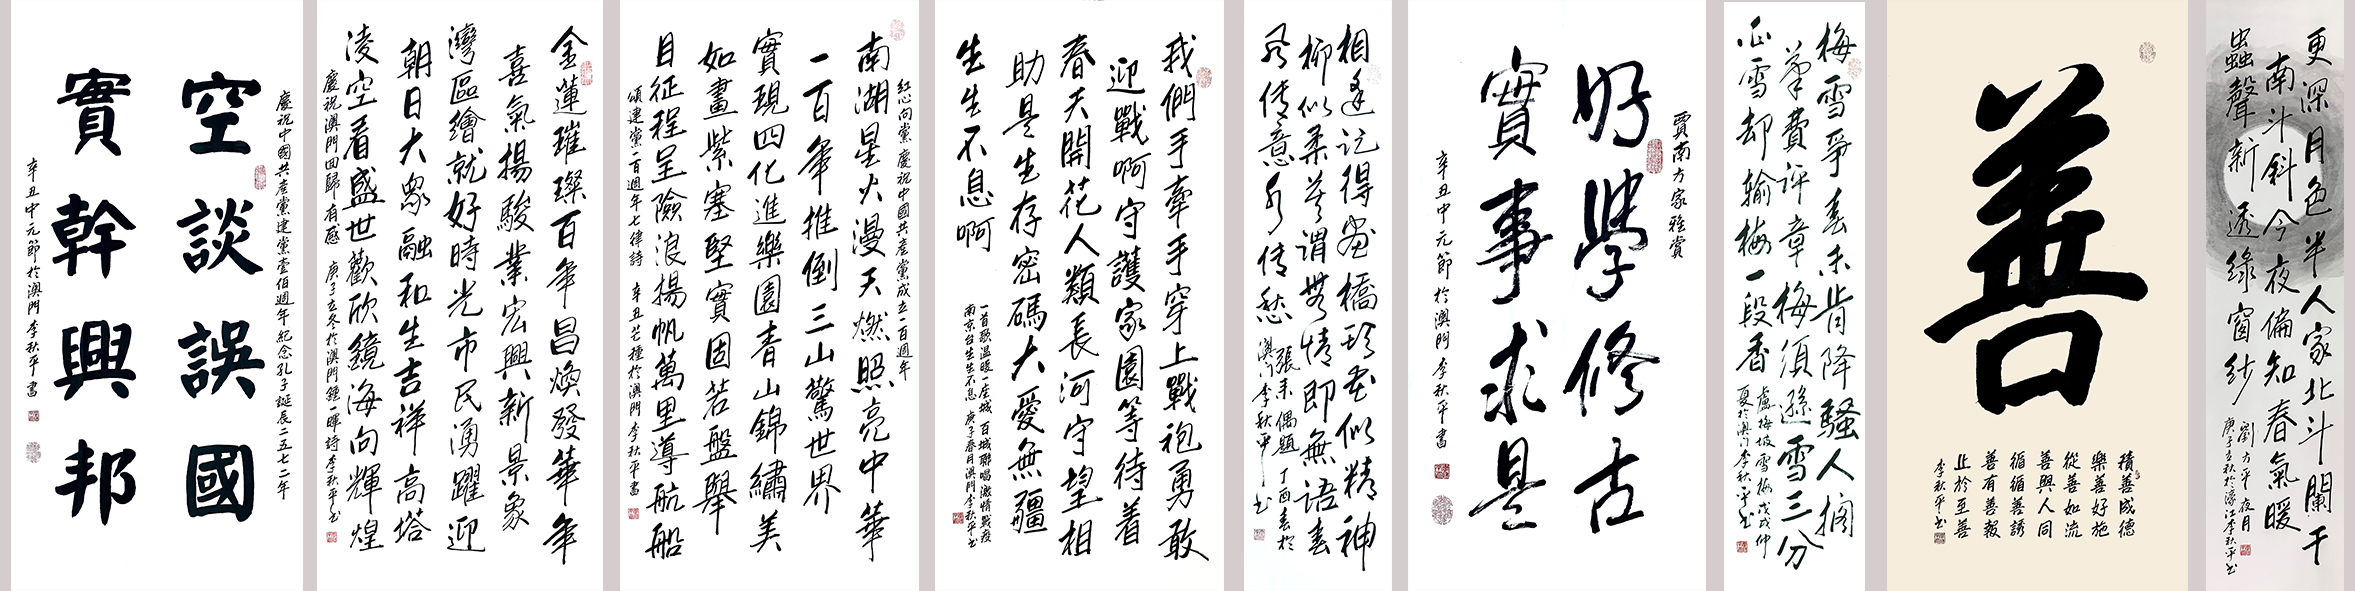 慶祝中國共産黨建黨壹佰週年紀念孔子誕辰二五七二年
空談誤國
實幹興邦
辛丑中元節於澳門李秋平書
金蓮璀璨百年昌煥發華年
喜氣揚駿業宏興新景象
灣區繪就好時光市民湧躍迎
朝日大眾融和生吉祥高塔
淩空看盛世歡欣鏡海向輝煌
慶祝澳門回歸有感 庚子立冬於澳門鍾一暉詩李秋平书
紅心向黨慶祝中國共産黨成立一百週年
南湖星火漫天燃照亮中華
一百年推倒三山驚世界
實現四化進樂園青山錦繡美
如畫紫塞堅實固若盤舉
目征程呈險浪揚帆萬里導航船
頌建黨一百週年七律詩 辛丑芒種於澳門李秋平書
我們手牽手穿上戰袍勇敢
迎戰啊守護家園等待着
春天開花人類長河守望相
助是生存密碼大愛無疆
生生不息啊
一首歌温暖一座城百城聯唱激情戰疫
南京台生生不息 庚子春月澳門李秋平书
相逢記得畫橋頭花似精神
柳似柔莫謂無情即無語春
風传意水传愁
張耒偶題丁酉春於
澳门李秋平书
賈南方家雅賞
好學修古
實事求是
辛丑中元節於澳門李秋平書
梅雪爭春未肯降騷人擱
筆費评章梅須遜雪三分
白雪却输梅一段香
盧梅坡雪梅戊戌仲
夏於澳门李秋平书
善
積善成德
樂善好施
從善如流
善與人同
循循善誘
善有善報
止於至善
李秋平书
更深月色半人家北斗闌干
南斗斜今夜偏知春氣暖
蟲聲新透綠窗纱
劉方平夜月
庚子立秋於濠江李秋平书